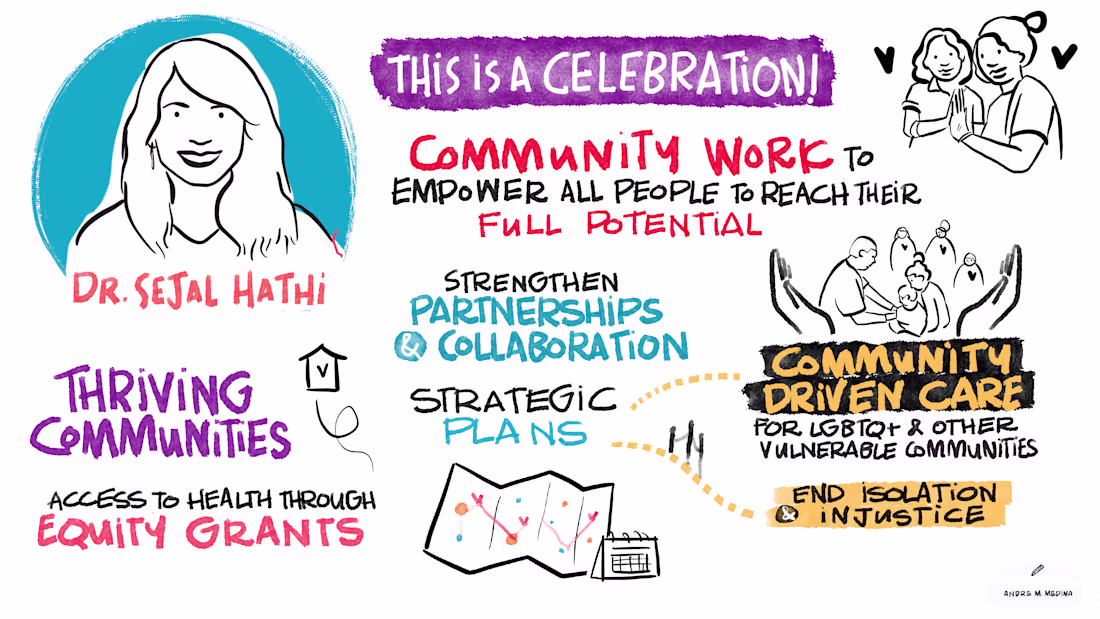 THIS IS A CELEBRATION!
COMMUNITY WORK TO
EMPOWER ALL PEOPLE TO REACH THEIR
FULL POTENTIAL
DR. SEJAL HATHI
STRENGTHEN
PARTNERSHIPS
& COLLABORATION
THRIVING
COMMUNITIES
ACCESS TO HEALTH THROUGH
EQUITY GRANTS
STRATEGIC
PLANS
COMMUNITY
DRIVEN CARE
FOR LGBTQ+ & OTHER
VULNERABLE COMMUNITIES
END ISOLATION
& INJUSTICE
ANDRE M. MEDINA